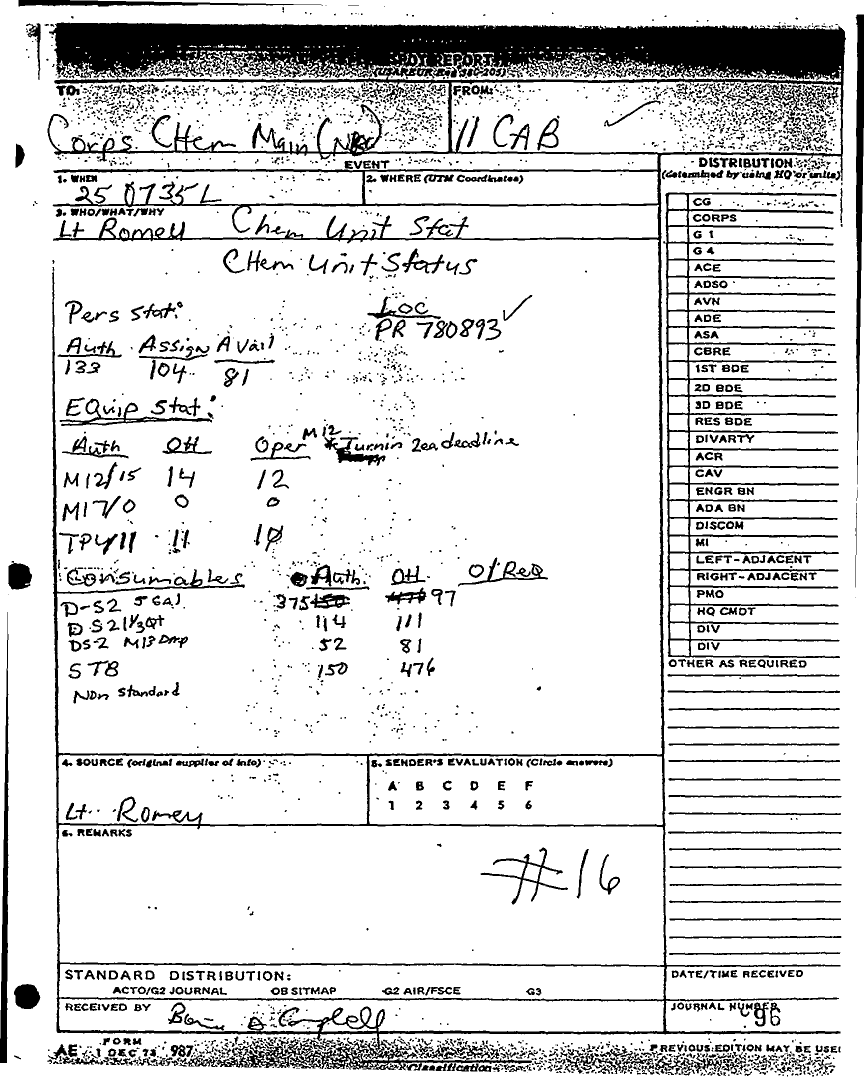 SPOT REPORT
(USAREUR Reg 380-205)
TO:
Corps CHem Main (NBC)
FROM:
11 CAB
EVENT
1. WHEN
25 0735L
2. WHERE (UTM Coordinates)
3. WHO/WHAT/WHY
Lt Romell Chem Unit Stat
CHem Unit Status
Pers Stat:
Loc
PR 780893
Auth Assign Avail
133 104 81
EQuip Stat:
Auth OH Oper M12 * Turnin 2ea deadline
M12/15 14 12
M17/0 0 0
TPU/11 11 10
Consumables Auth. OH O/Req
D-S2 5 Gal 375 97
DS2 1 1/3 Qt 114 111
DS-2 M13 Dmp 52 81
STB 150 476
Non Standard
4. SOURCE (original supplier of info)
Lt. Romey
5. SENDER'S EVALUATION (Circle answers)
A B C D E F
1 2 3 4 5 6
6. REMARKS
#16
STANDARD DISTRIBUTION:
ACTO/G2 JOURNAL OB SITMAP G2 AIR/FSCE G3
RECEIVED BY
Campbell
AE FORM 1 DEC 73 987
Classification
DISTRIBUTION
(determined by using HQ or units)
CG
CORPS
G 1
G 4
ACE
ADSO
AVN
ADE
ASA
CBRE
1ST BDE
2D BDE
3D BDE
RES BDE
DIVARTY
ACR
CAV
ENGR BN
ADA BN
DISCOM
MI
LEFT-ADJACENT
RIGHT-ADJACENT
PMO
HQ CMDT
DIV
DIV
OTHER AS REQUIRED
DATE/TIME RECEIVED
JOURNAL NUMBER
96
PREVIOUS EDITION MAY BE USE